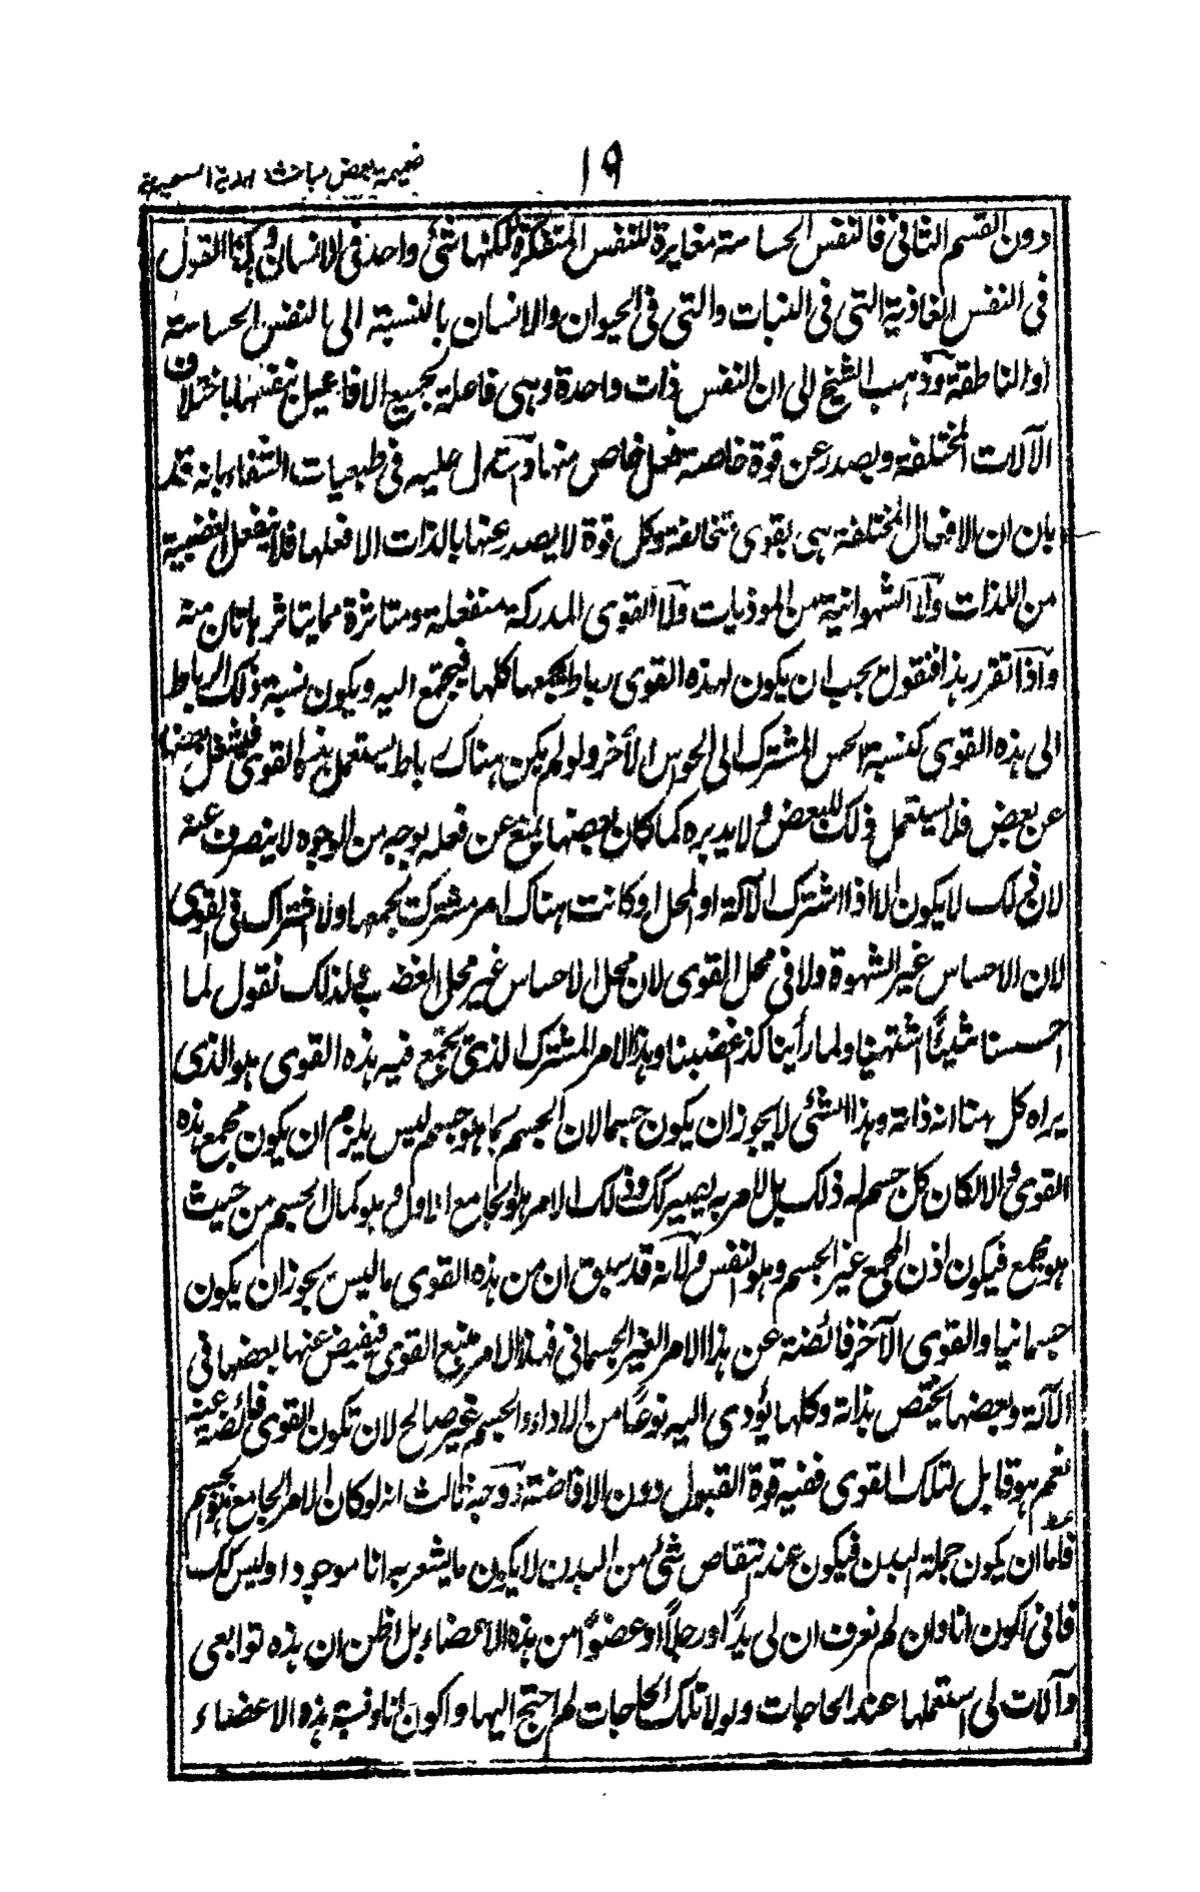 ضميمة بعض مباحث الهدية السعيدية
١٩
دون القسم الثانى فالنفس الحساسة مغايرة للنفس المتفكرة لكنها شئ واحد فى الانسان وكذا القول
فى النفس الغاذية التى فى النبات والتى فى الحيوان والانسان بالنسبة الى النفس الحساسة
او الناطقة وذهب الشيخ الى ان النفس ذات واحدة وهى فاعلة بجميع الافاعيل بنفسها باختلاف
الآلات المختلفة ويصدر عن قوة خاصة فعل خاص منها واستدل عليه فى طبعيات الشفاء بانه قد
بان ان الافعال المختلفة هى بقوى متخالفة وكل قوة لا يصدر عنها بالذات الا فعلها فلا ينفعل الغضبية
من اللذات ولا الشهوانية من الموذيات ولا القوى المدركة منفعلة ومتاثرة مما يتاثر هاتان منه
واذا تقرر هذا فنقول يجب ان يكون لهذه القوى رباط يجمعها كلها فيجتمع اليه ويكون نسبة ذلك الرباط
الى هذه القوى كنسبة الحس المشترك الى الحوس الأخر ولو لم يكن هناك رباط يستعمل هذه القوى فيشتغل ببعضها
عن بعض فلا يستعمل ذلك البعض ولا يدبره كما كان بعضها يمنع عن فعله بوجه من الوجوه لا ينصرف عنه
لان ذلك لا يكون الا اذا اشترك الآلة او المحل او كانت هناك امر مشترك يجمعها ولا اشتراك فى القوى
لان الاحساس غير الشهوة ولا فى محل القوى لان محل الاحساس غير محل الغضب ولذلك نقول لما
احسسنا شيئًا اشتهينا ولما رأينا كذا غضبنا وهذا الامر المشترك الذى يجتمع فيه هذه القوى هو الذى
يراه كل منا انه ذاته وهذا الشئ لا يجوز ان يكون جسما لان الجسم بما هو جسم ليس يلزم ان يكون مجمع هذه
القوى والا لكان كل جسم له ذلك بل لامر به يصير كك وذلك الامر هو الجامع الاول وهو كمال الجسم من حيث
هو مجمع فيكون اذن المجمع غير الجسم وهو النفس ولانه قد سبق ان من هذه القوى ما ليس يجوز ان يكون
جسمانيا والقوى الآخر فائضة عن هذا الامر الغير الجسمانى فهذا الامر منبع القوى فيفيض عنها بعضها فى
الآلة وبعضها يختص بذاته وكلها يؤدى اليه نوعًا من الاداء والجسم غير صالح لان تكون القوى فائضة عنه
نعم هو قابل لتلك القوى ففيه قوة القبول دون الافاضة ووجه ثالث انه لو كان الامر الجامع هو الجسم
فاما ان يكون جملة البدن فيكون عند نتقاص شئ من البدن لا يكون ما يشعر به انا موجودا وليس كك
فانى اكون انا وان لم نعرف ان لى يدًا او رجلًا او عضوًا من هذه الاعضاء بل اظن ان هذه توابعى
وآلات لى استعملها عند الحاجات ولولا تلك الحاجات لم احتج اليها واكون انا ونسبة هذه الاعضاء